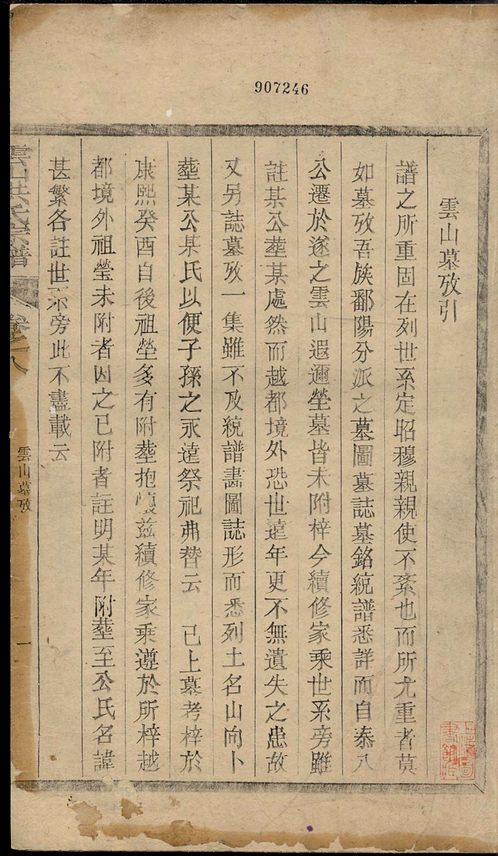 907246
雲山墓攷引
譜之所重固在列世系定昭穆親親使不紊也而所尤重者莫
如墓攷吾族鄱陽分派之墓圖墓誌墓銘統譜悉詳而自泰八
公遷於遂之雲山遐邇塋墓皆未附梓今續修家乘世系旁雖
註某公塟某處然而越都境外恐世遠年更不無遺失之患故
又另誌墓攷一集雖不及統譜畵圖誌形而悉列土名山向卜
塟某公某氏以便子孫之永遠祭祀弗替云 已上墓考梓於
康熙癸酉自後祖塋多有附塟抱兹續修家乘遵於所梓越
都境外祖塋未附者因之已附者註明某年附塟至公氏名諱
甚繁各註世系旁此不盡載云
雲山洪氏宗譜
卷之八
雲山墓攷
一